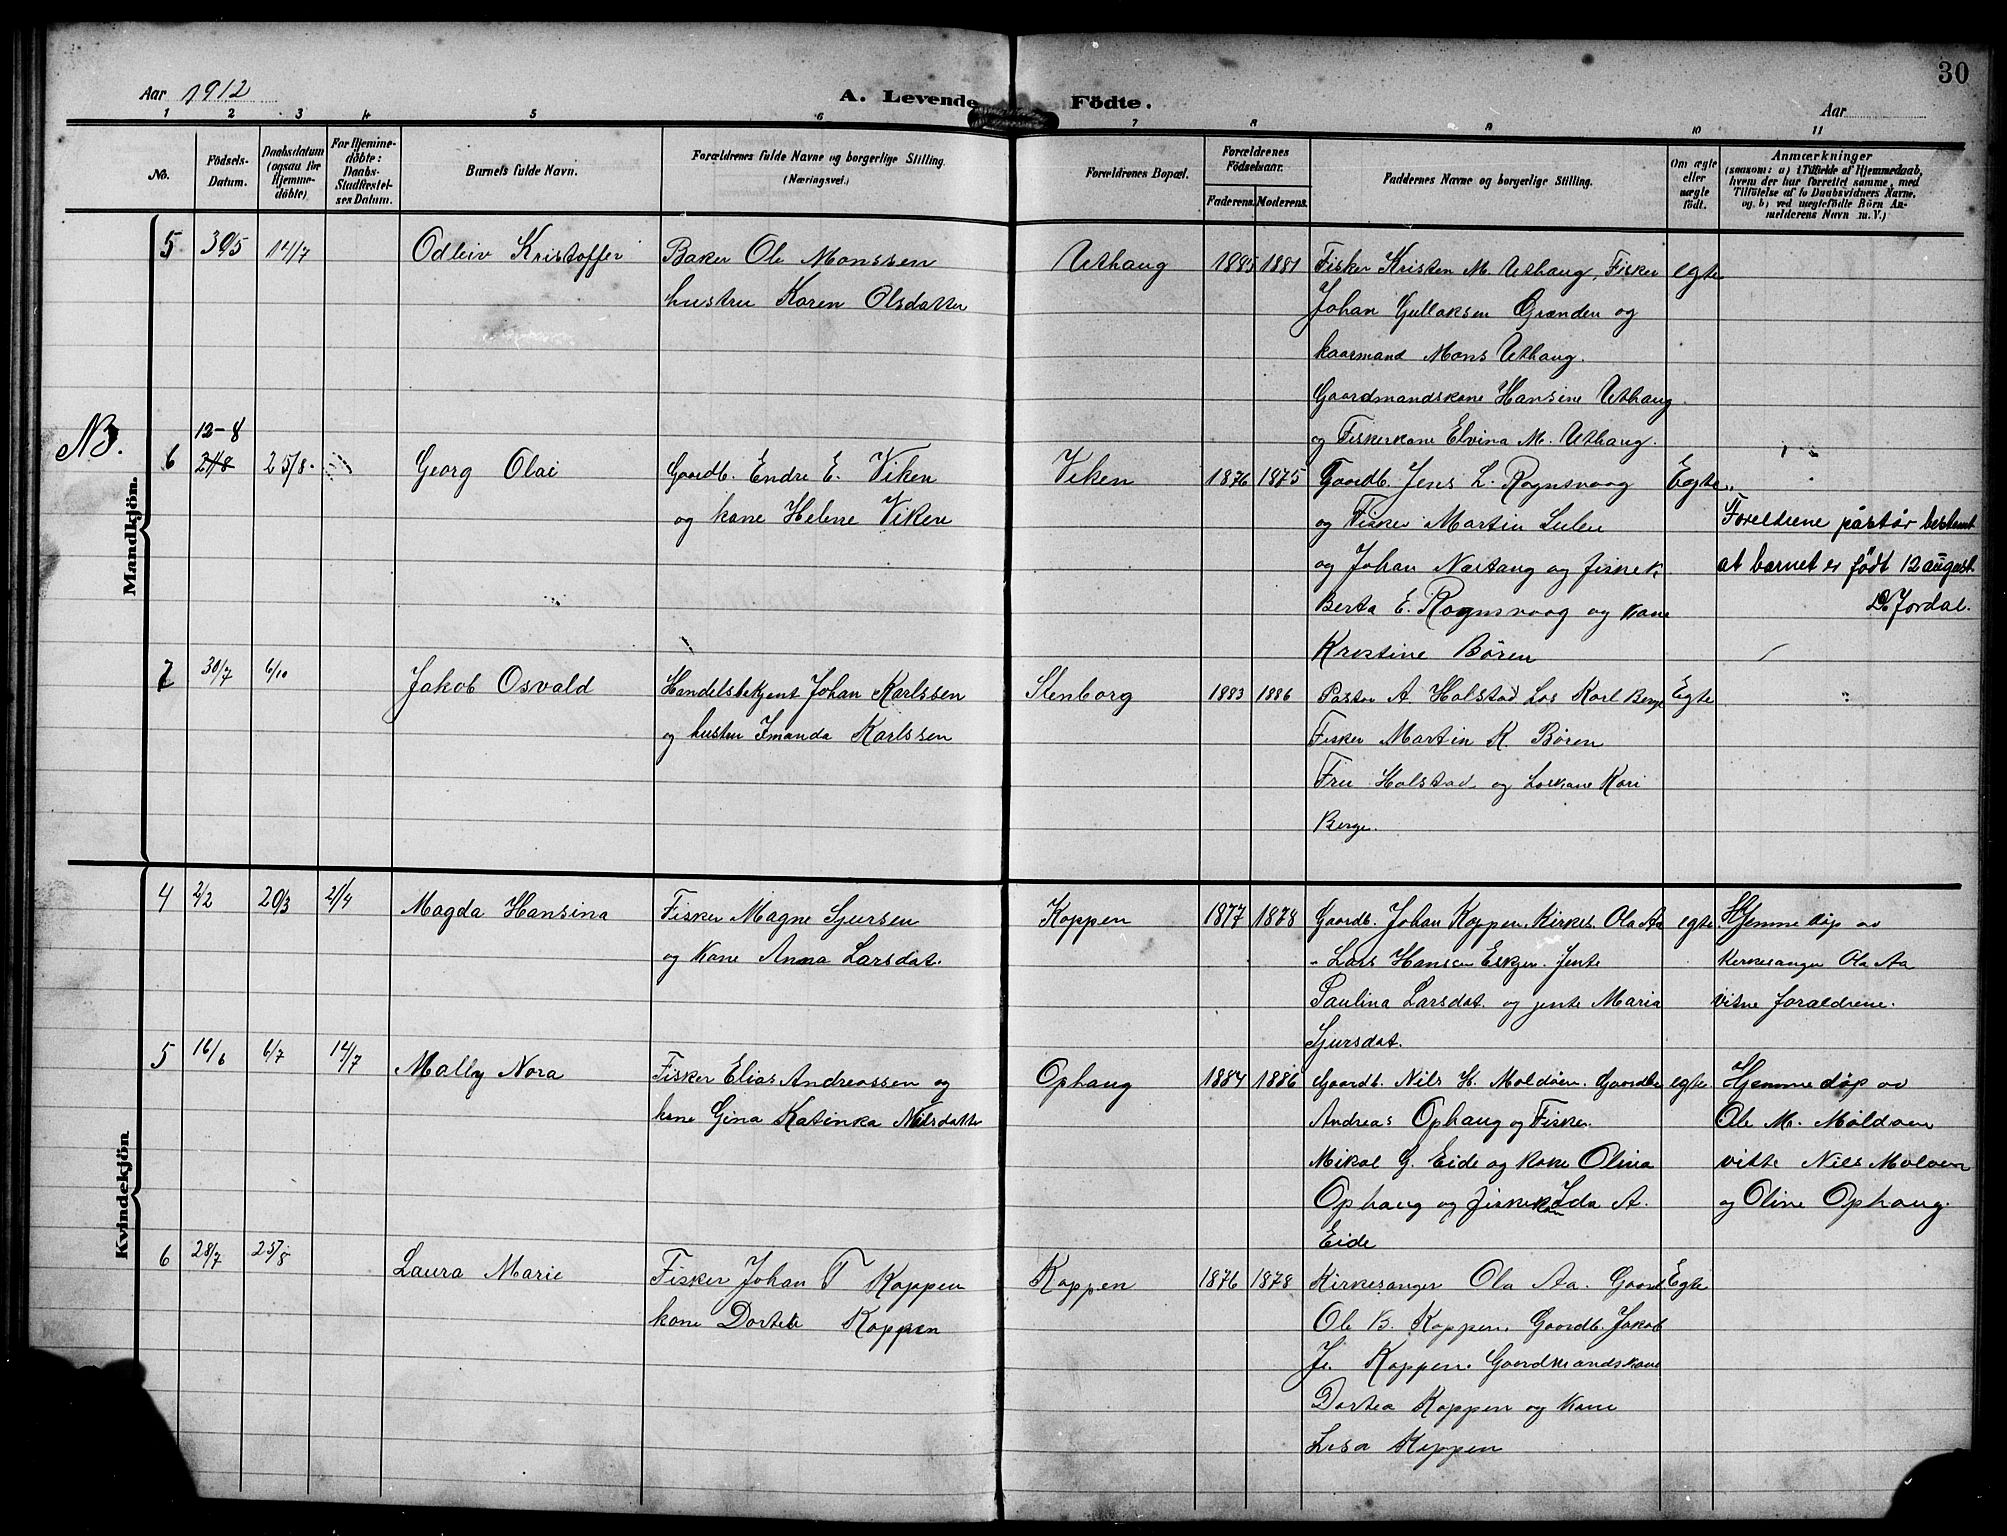 30
Aar 1912
A. Levende Födte.
Aar
1 2 3 4 5 6 7 8 9 10 11
No.
Födsels-Datum.
Daabsdatum (ogsaa for Hjemme-döbte).
For Hjemme-döbte: Daabs-Stadfæstel-ses Datum.
Barnets fulde Navn.
Forældrenes fulde Navne og borgerlige Stilling. (Næringsvei.)
Forældrenes Bopæl.
Forældrenes Födselsaar.
Faderens. Moderens.
Faddernes Navne og borgerlige Stilling.
Om ægte eller uægte födt.
Anmærkninger
(saasom: a) i Tilfælde af Hjemmedaab, hvem der har forrettet samme, med Tilföielse af to Daabsvidners Navne. og, b) ved uægtefödte Börn An-melderens Navn m. V.)
Mandkjön.
5 30/5 14/7 Odleiv Kristoffer Baker Ole Monssen Uthaug 1885 1881 Fisker Kristen M. Uthaug, Fisker egte
hustru Karen Olsdatter Johan Gullaksen Grænden og
kaarmand Mons Uthaug.
Gaardmandskone Hansine Uthaug
og Fiskerkone Elvina M. Uthaug.
NB. 12-8
6 21/8 25/8 Georg Olai Gaardb. Endre E. Viken Viken 1876 1875 Gaardb. Jens L. Rognsvaag Egte
og kone Helene Viken og Fisker Martin Lulen Foreldrene påstår bestemt
og Johan Nærtaug og fiskerk. at barnet er født 12 august
Berta E. Rognsvaag og kone Jordal.
Kristine Bören
7 30/7 6/10 Jakob Osvald Handelsbetjent Johan Karlssen Stenborg 1883 1886 Pastor A. Holstad Los Karl Berge Egte
og hustru Imanda Karlssen Fisker Martin K. Bören
Fru Holstad og Loskone Kari
Berge.
Kvindekjön
4 2/2 20/3 21/4 Magda Hansina Fisker Magne Sjursen Koppen 1877 1878 Gaardb. Johan Koppen, Kirkes. Ola Aa egte Hjemmedöp av
og Kone Anna Larsdat. Lars Hansen Jente Kirkesanger Ola Aa
Paulina Larsdat. og jente Maria vitne foraldrene.
Sjursdat.
5 16/6 6/7 14/7 Mally Nora Fisker Elias Andreassen og Ophaug 1884 1886 Gaardb. Nils H. Moldöen. Gaardb. egte Hjemmedöp av
kone Gina Katinka Nilsdatter Andreas Ophaug og Fisker Ole M. Moldöen
Mikal G. Eide og kone Olina vitte Nils Moldöen
Ophaug og fiskerkone Ida A. og Oline Ophaug.
Eide
6 28/7 25/8 Laura Marie Fisker Johan T Koppen Koppen 1876 1878 Kirkesanger Ola Aa. Gaard Egte
kone Dortea Koppen Ole B. Koppen, Gaardb. Jakob
J. Koppen. Gaardmandskone
Dortea Koppen og Kone
Lisa Koppen